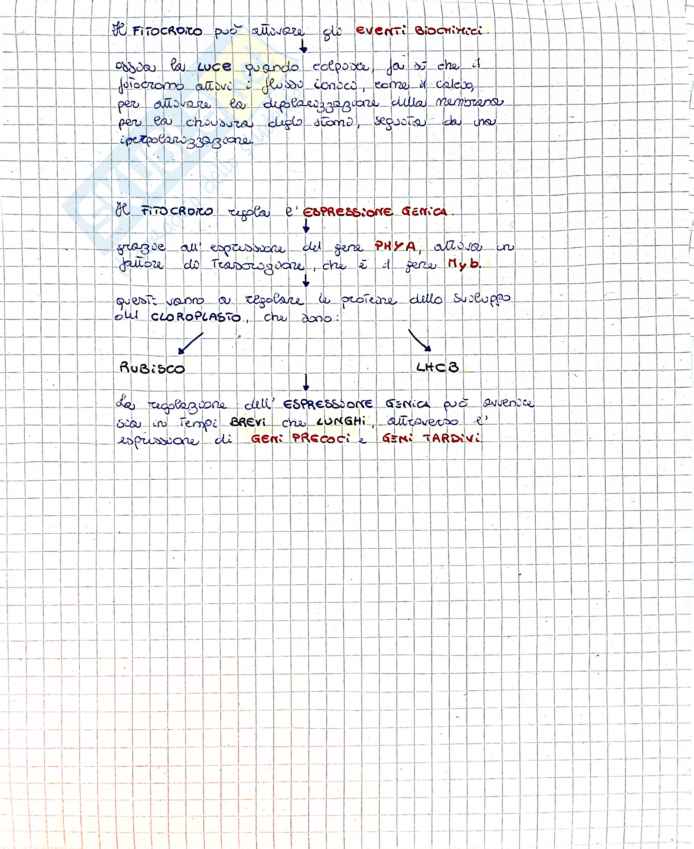 Il FITOCROMO può attivare gli EVENTI BIOCHIMICI.
ossia la LUCE quando colpisce, fa sì che il
fitocromo attivi i flussi ionici, come il calcio,
per attivare la depolarizzazione della membrana
per la chiusura degli stomi, seguita da una
iperpolarizzazione.
Il FITOCROMO regola l'ESPRESSIONE GENICA.
grazie all'espressione del gene PHYA, attiva un
fattore di trascrizione, che è il gene Myb.
questi vanno a regolare le proteine dello sviluppo
del CLOROPLASTO, che sono:
RUBISCO LHCB
La regolazione dell'ESPRESSIONE GENICA può avvenire
sia in tempi BREVI che LUNGHI, attraverso l'
espressione di GENI PRECOCI e GENI TARDIVI